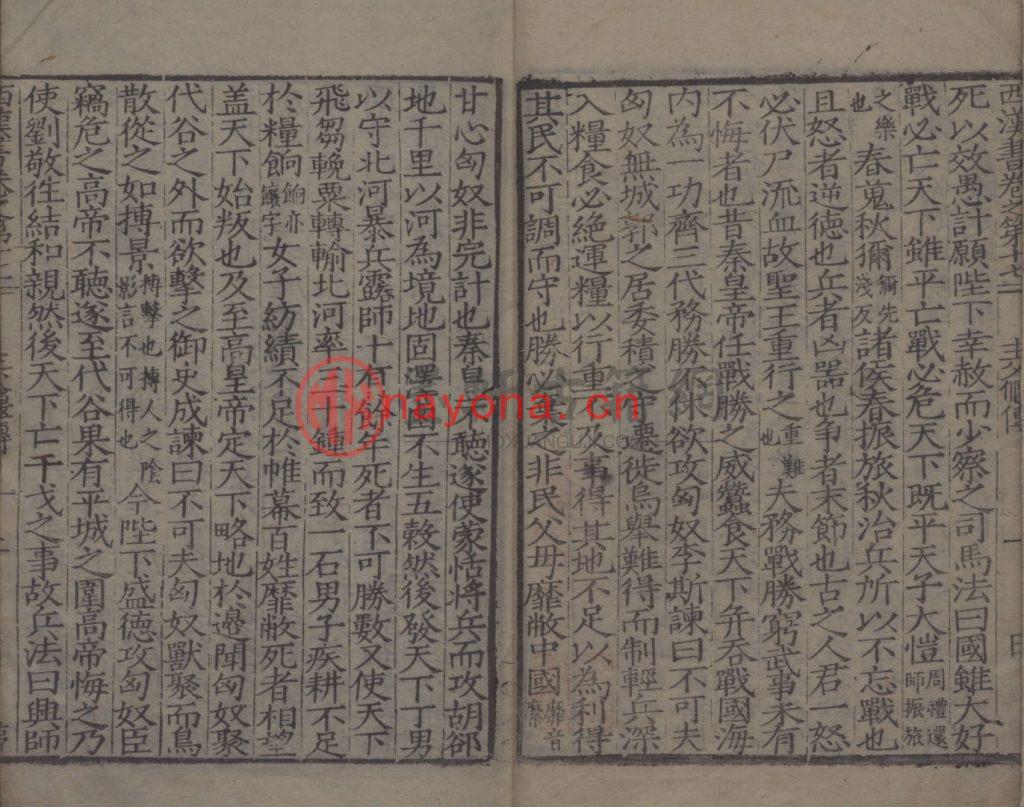 死以效愚計願陛下幸赦而少察之司馬法曰國雖大好
戰必亡天下雖平亡戰必危天下既平天子大愷周禮還師振旅
之樂也春蒐秋獮獮先淺反諸侯春振旅秋治兵所以不忘戰也
且怒者逆德也兵者凶器也争者末節也古之人君一怒
必伏尸流血故聖王重行之重難也夫務戰勝窮武事未有
不悔者也昔秦皇帝任戰勝之威蠶食天下并吞戰國海
内為一功齊三代務勝不休欲攻匈奴李斯諫曰不可夫
匈奴無城郭之居委積之守遷徙鳥舉難得而制輕兵深
入糧食必絶運糧以行重不及事得其地不足以為利得
其民不可調而守也勝必棄之非民父母靡敝中國靡音糜
甘心匈奴非完計也秦皇不聽遂使蒙恬將兵而攻胡郤
地千里以河為境地固澤鹵不生五穀然後發天下丁男
以守北河暴兵露師十有餘年死者不可勝數又使天下
飛芻輓粟轉輸北河率三十鍾而致一石男子疾耕不足
於糧餉餉亦饟字女子紡績不足於帷幕百姓靡敝死者相望
盖天下始叛也及至高皇帝定天下略地於邉聞匈奴聚
代谷之外而欲擊之御史成諫曰不可夫匈奴獸聚而鳥
散從之如搏景搏擊也搏人之陰影言不可得也今陛下盛德攻匈奴臣
竊危之高帝不聽遂至代谷果有平城之圍高帝悔之乃
使劉敬往結和親然後天下亡干戈之事故兵法曰興師
nayona.cn